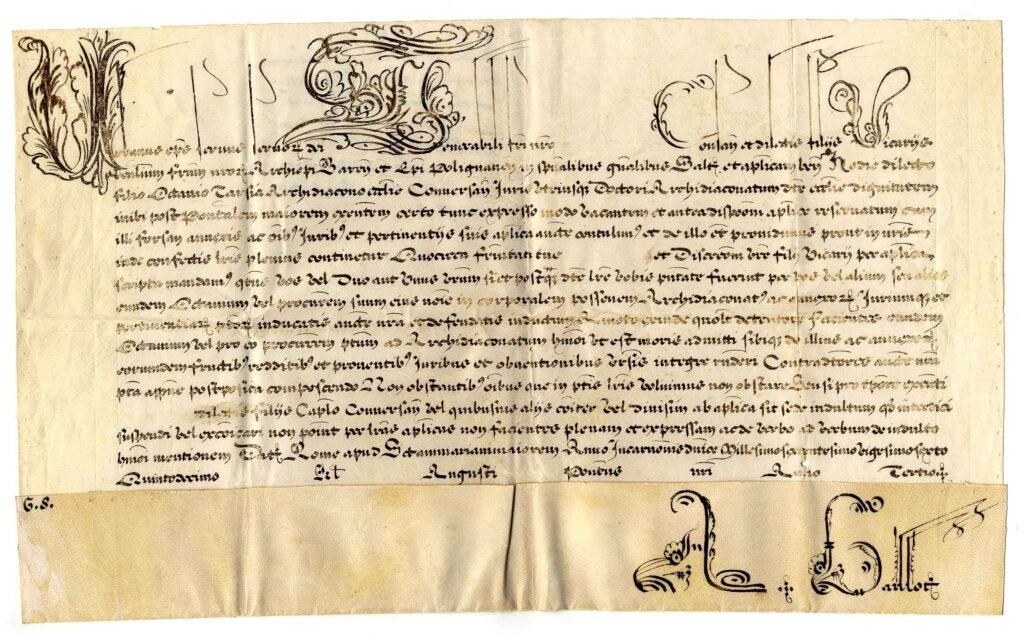 Urbanus eps servus servor dei Venerabili fri nro Consan et dilectis filijs Vicarijs
venlium frum nror Archiepi Baren et Epi Polignanen in spualibus gnalibus Saltm et aplicam ben Hodie dilecto
filio Octavio Tarsia Archidiacono ecclie Conversan Juris utriusq Doctori Archidiaconatum dte ecclie dignitatem
inibi post Pontalem maiorem exntem certo tunc expresso modo vacantem et antea dispooni aplice reservatum cum
illi forsan annexis ac oibus Juribus et pertinentijs suis aplica aucte contulimus et de illo et providimus prout in nris
inde confectis lris plenius continetur Quocirca frnitati tue et Discreoni vre filij Vicarij per aplica
scripta mandamus qtnus vos vel Duo aut Unus vrum si et postq dte lre vobis pntate fuerint per vos vel alium seu alios
eundem Octavium vel procurem suum eius noie in corporalem possonem Archidiaconatus ac annexor Juriumq et
pertinentiar ptor inducatis aucte nra et defendatis inductum Amoto exinde quolt detentore Facientes eundem
Octavium vel pro eo procurem ptum ad Archidiaconatum hmoi ut est moris admitti sibiq de illius ac annexor
eorundem fructibus redditibus et proventibus Juribus et obventionibus universis integre rnderi Contradictores aucte nra
pta appne postposita compescendo Non obstantibus oibus que in ptis lris voluimus non obstare Seu si pro tpore existenti
dilectis filijs Caplo Conversan vel quibusvis alijs coiter vel divisim ab aplica sit sede indultum qd interdici
suspendi vel excoicari non possint per lras aplicas non facientes plenam et expressam ac de verbo ad verbum de indulto
hmoi mentionem Dat Rome apud Sctammariammaiorem Anno Incarnonis dnice Millesimosexcentesimovigesimosexto
Quintodecimo Kl Augusti Pontus nri Anno Tertio
G. S.